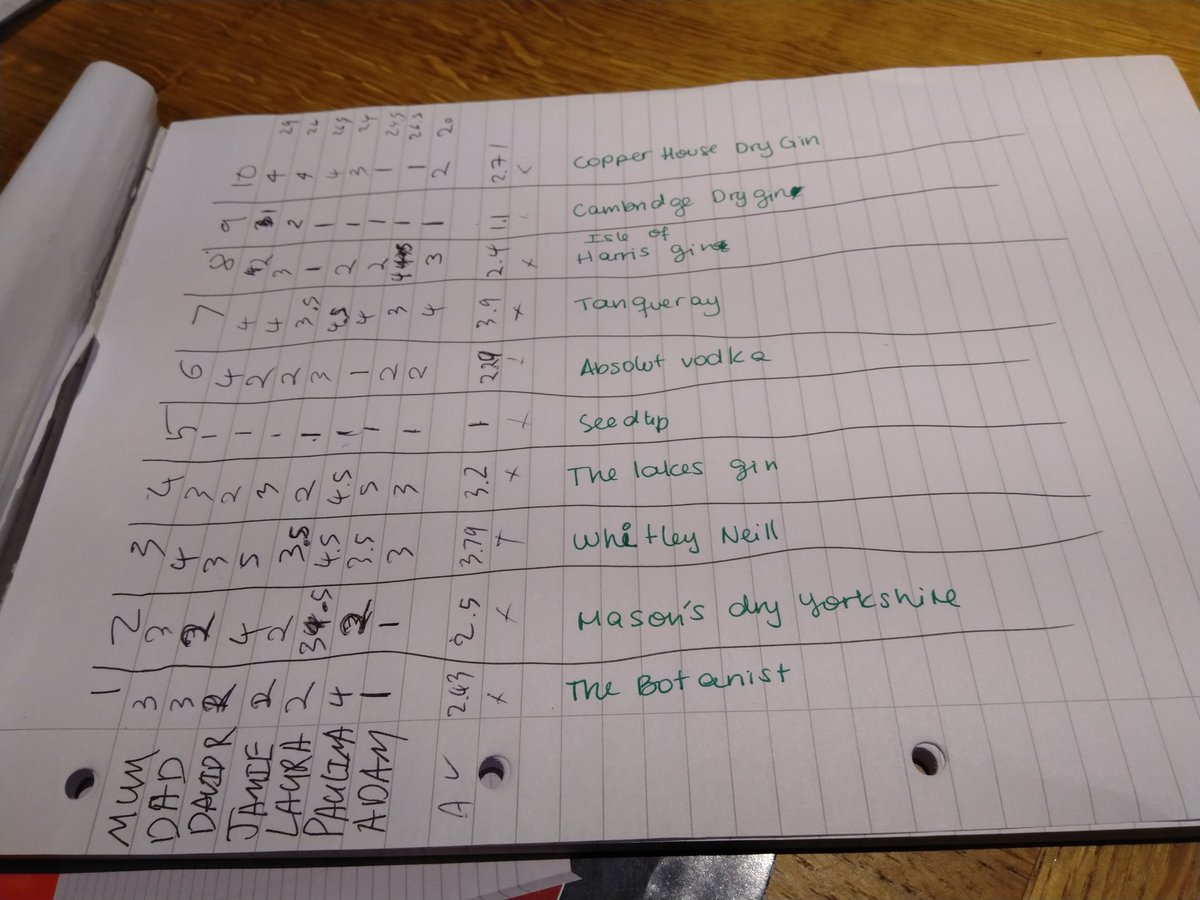 1 2 3 4 5 6 7 8 9 10
MUM 3 3 4 3 1 4 4 2 1 4 29
DAD 3 2 3 2 1 2 4 3 2 4 26
DAVID R 2 4 5 3 1 2 3.5 1 1 4 26.5
JAMIE 2 2 3.5 2 1 3 4.5 2 1 3 24
LAURA 2 3.5 4.5 4.5 1 1 4 2 1 1 24.5
PAULINA 4 2 3.5 5 1 2 3 1 1 26.5
ADAM 1 1 3 3 1 2 4 3 1 2 20
AV 2.43 2.5 3.79 3.2 1 2.29 3.9 2.4 1.1 2.71
Copper House Dry Gin
Cambridge Dry gin
Isle of
Harris gin
Tanqueray
Absolut vodka
Seedlip
The lakes gin
Whitley Neill
Mason's dry yorkshire
The Botanist